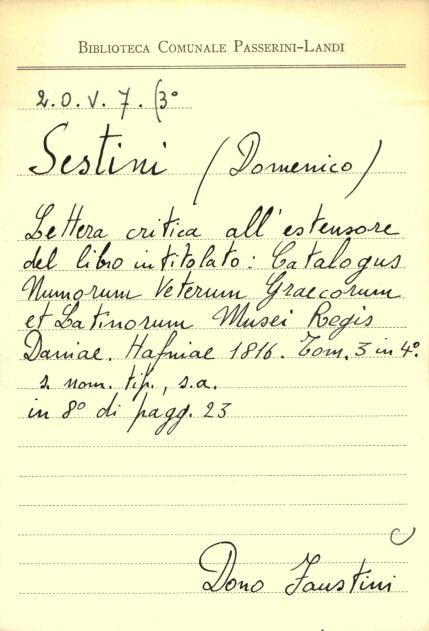 BIBLIOTECA COMUNALE PASSERINI-LANDI
2.O.V.7.(3°
Sestini (Domenico)
Lettera critica all'estensore
del libro intitolato: Catalogus
Numorum Veterum Graecorum
et Latinorum Musei Regis
Daniae. Hafniae 1816. Tom. 3 in 4°.
s. nom. tip., s.a.
in 8° di pagg. 23
Dono Faustini